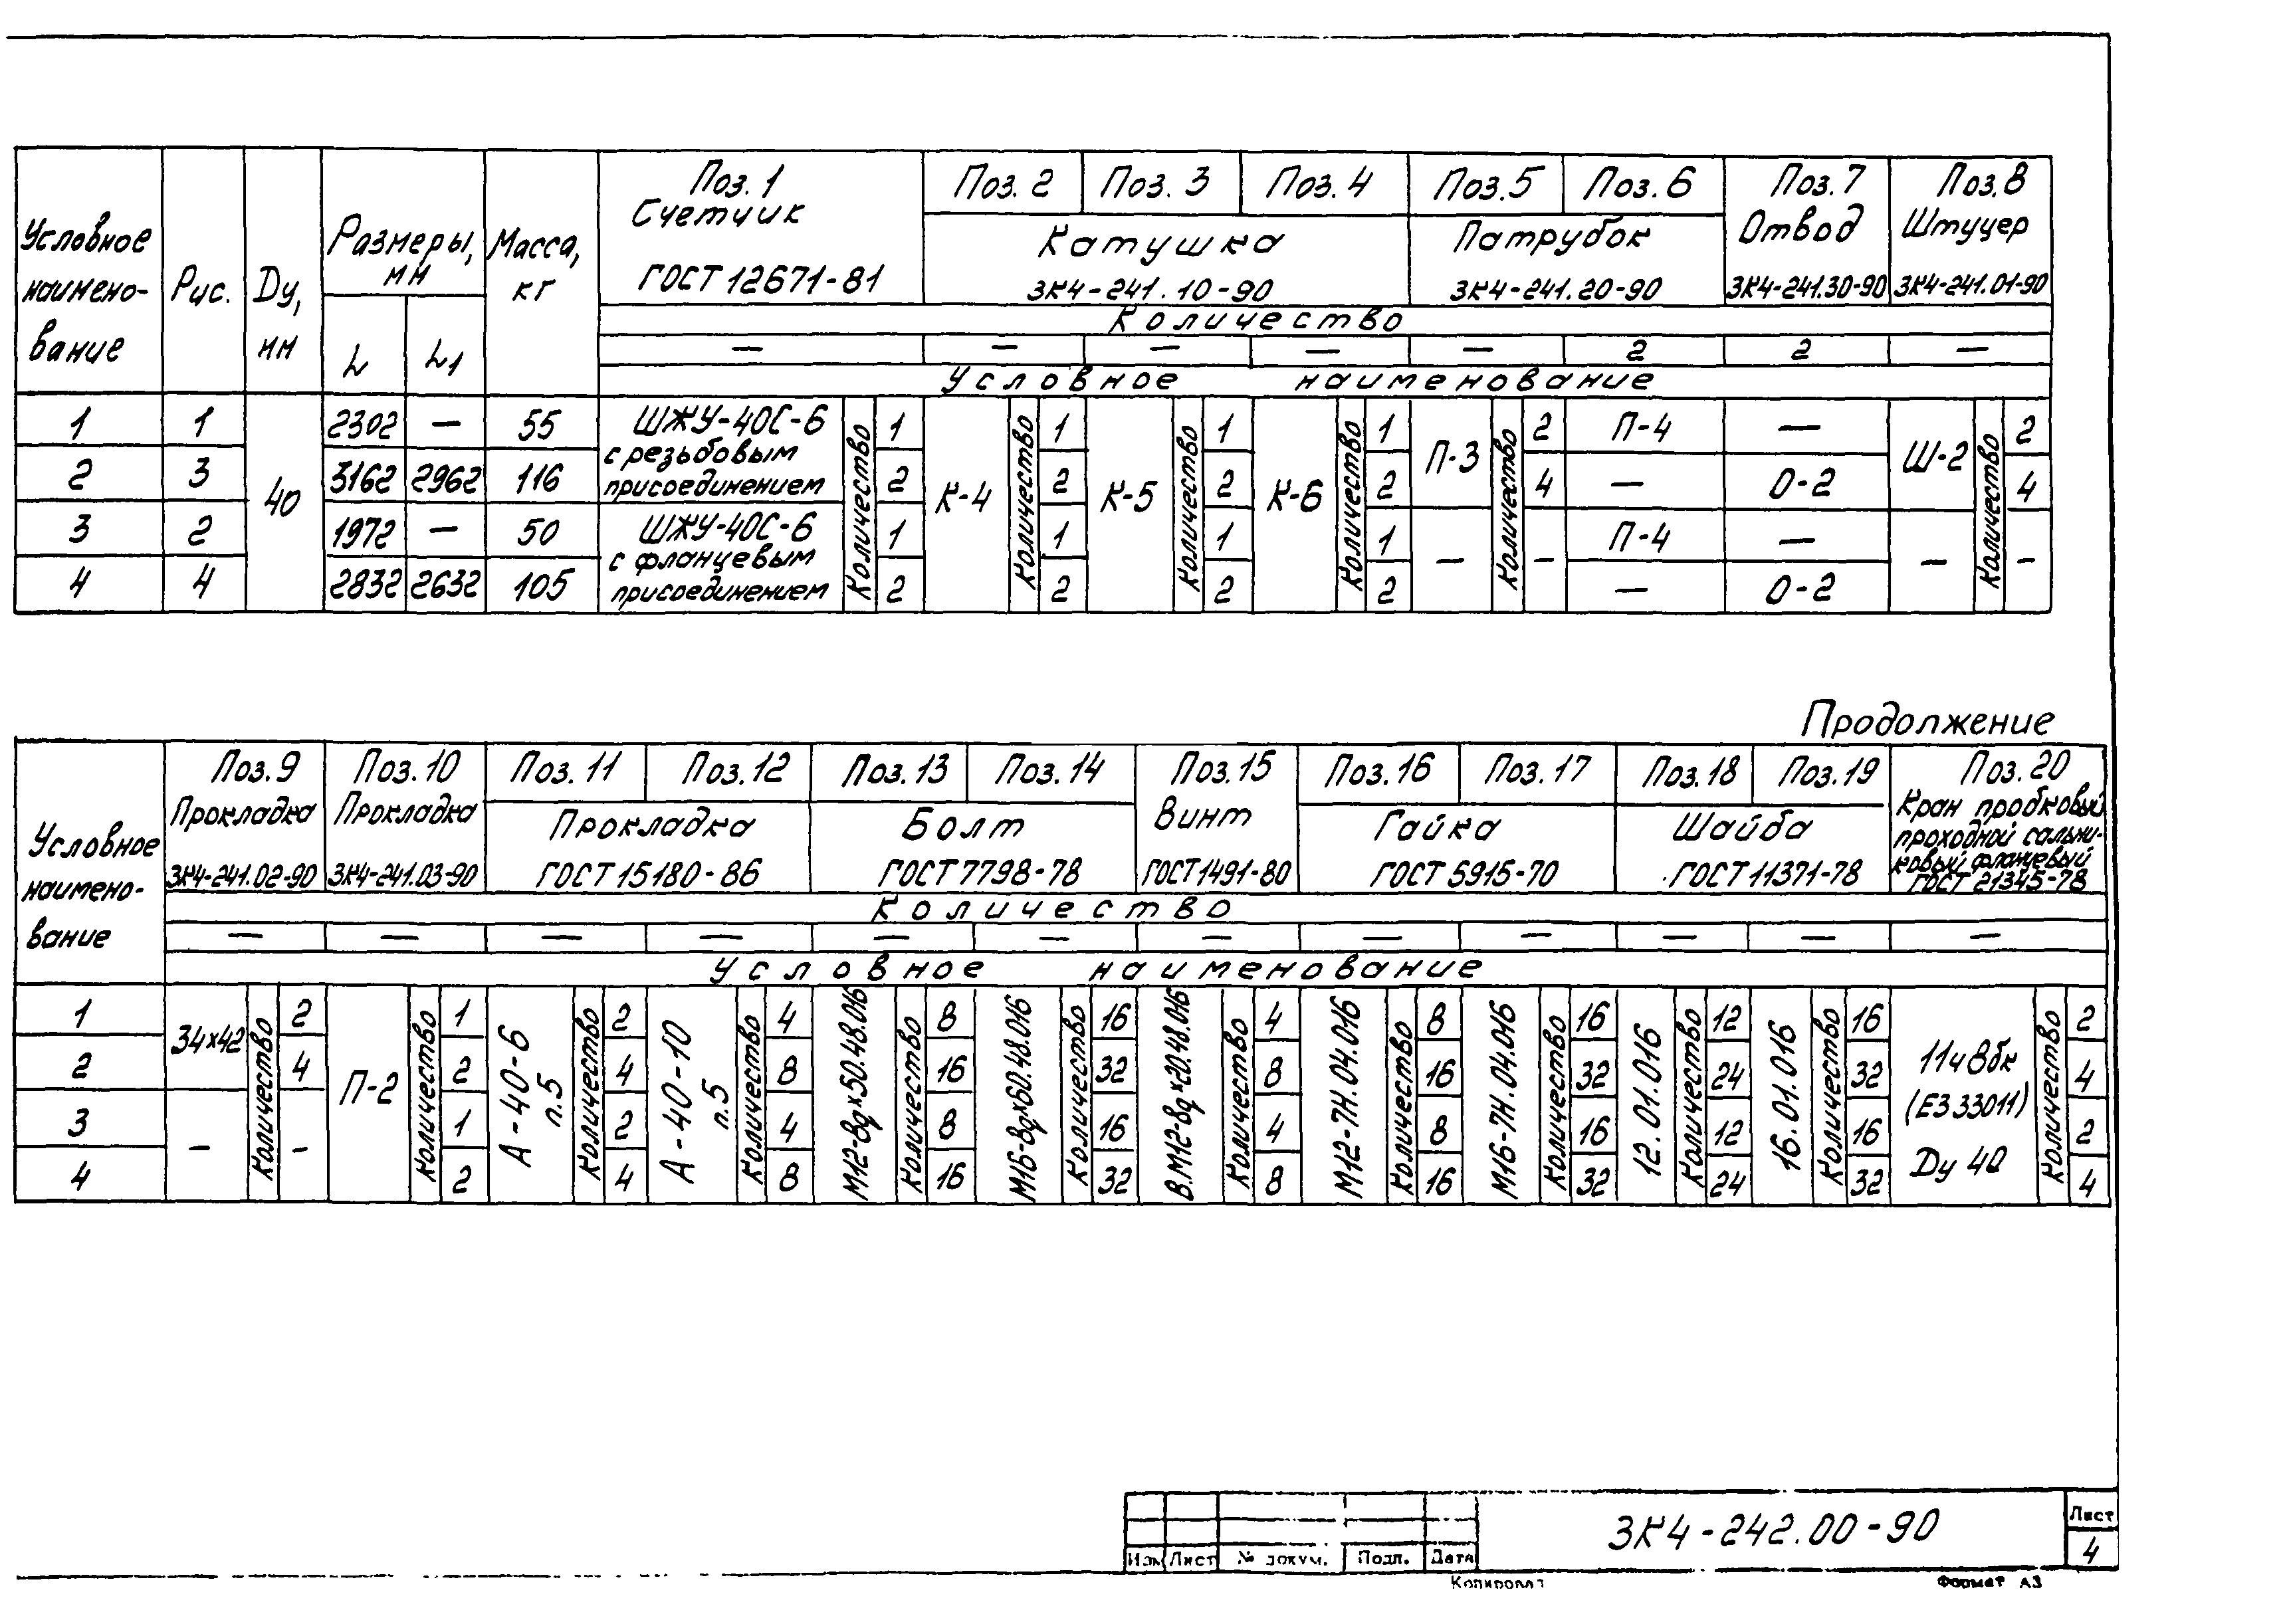 Условное наимено- вание | Рис. | Ду, мм | Размеры, мм | Масса, кг | Поз. 1 Счетчик ГОСТ 12671-81 | Поз. 2 | Поз. 3 | Поз. 4 | Поз. 5 | Поз. 6 | Поз. 7 Отвод 3К4-241.30-90 | Поз. 8 Штуцер 3К4-241.01-90
Катушка 3К4-241.10-90 | Патрубок 3К4-241.20-90
L | L1
Количество
— | — | — | — | — | 2 | 2 | —
Условное наименование
1 | 1 | 40 | 2302 | — | 55 | ШЖУ-40С-6 с резьбовым присоединением | Количество | 1 | К-4 | Количество | 1 | К-5 | Количество | 1 | К-6 | Количество | 1 | П-3 | Количество | 2 | П-4 | — | Ш-2 | Количество | 2
2 | 3 | 3162 | 2962 | 116 | 2 | 2 | 2 | 2 | 4 | — | О-2 | 4
3 | 2 | 1972 | — | 50 | ШЖУ-40С-6 с фланцевым присоединением | 1 | 1 | 1 | 1 | — | - | П-4 | — | — | -
4 | 4 | 2832 | 2632 | 105 | 2 | 2 | 2 | 2 | — | О-2
Продолжение
Условное наимено- вание | Поз. 9 Прокладка 3К4-241.02-90 | Поз. 10 Прокладка 3К4-241.03-90 | Поз. 11 | Поз. 12 | Поз. 13 | Поз. 14 | Поз. 15 Винт ГОСТ 1491-80 | Поз. 16 | Поз. 17 | Поз. 18 | Поз. 19 | Поз. 20 Кран пробковый проходной сальни- ковый фланцевый ГОСТ 21345-78
Прокладка ГОСТ 15180-86 | Болт ГОСТ 7798-78 | Гайка ГОСТ 5915-70 | Шайба ГОСТ 11371-78
Количество
— | — | — | — | — | — | — | — | — | — | — | —
Условное наименование
1 | 34×42 | Количество | 2 | П-2 | Количество | 1 | А-40-6 п.5 | Количество | 2 | А-40-10 п.5 | Количество | 4 | М12-8g×50.48.016 | Количество | 8 | М16-8g×60.48.016 | Количество | 16 | В.М12-8g×20.48.016 | Количество | 4 | М12-7Н.04.016 | Количество | 8 | М16-7Н.04.016 | Количество | 16 | 12.01.016 | Количество | 12 | 16.01.016 | Количество | 16 | 11ч8бк (ЕЗ 33011) Ду 40 | Количество | 2
2 | 4 | 2 | 4 | 8 | 16 | 32 | 8 | 16 | 32 | 24 | 32 | 4
3 | - | - | 1 | 2 | 4 | 8 | 16 | 4 | 8 | 16 | 12 | 16 | 2
4 | 2 | 4 | 8 | 16 | 32 | 8 | 16 | 32 | 24 | 32 | 4
3К4-242.00-90
Лист
4
Изм Лист № докум. Подп. Дата
Копировал
Формат А3